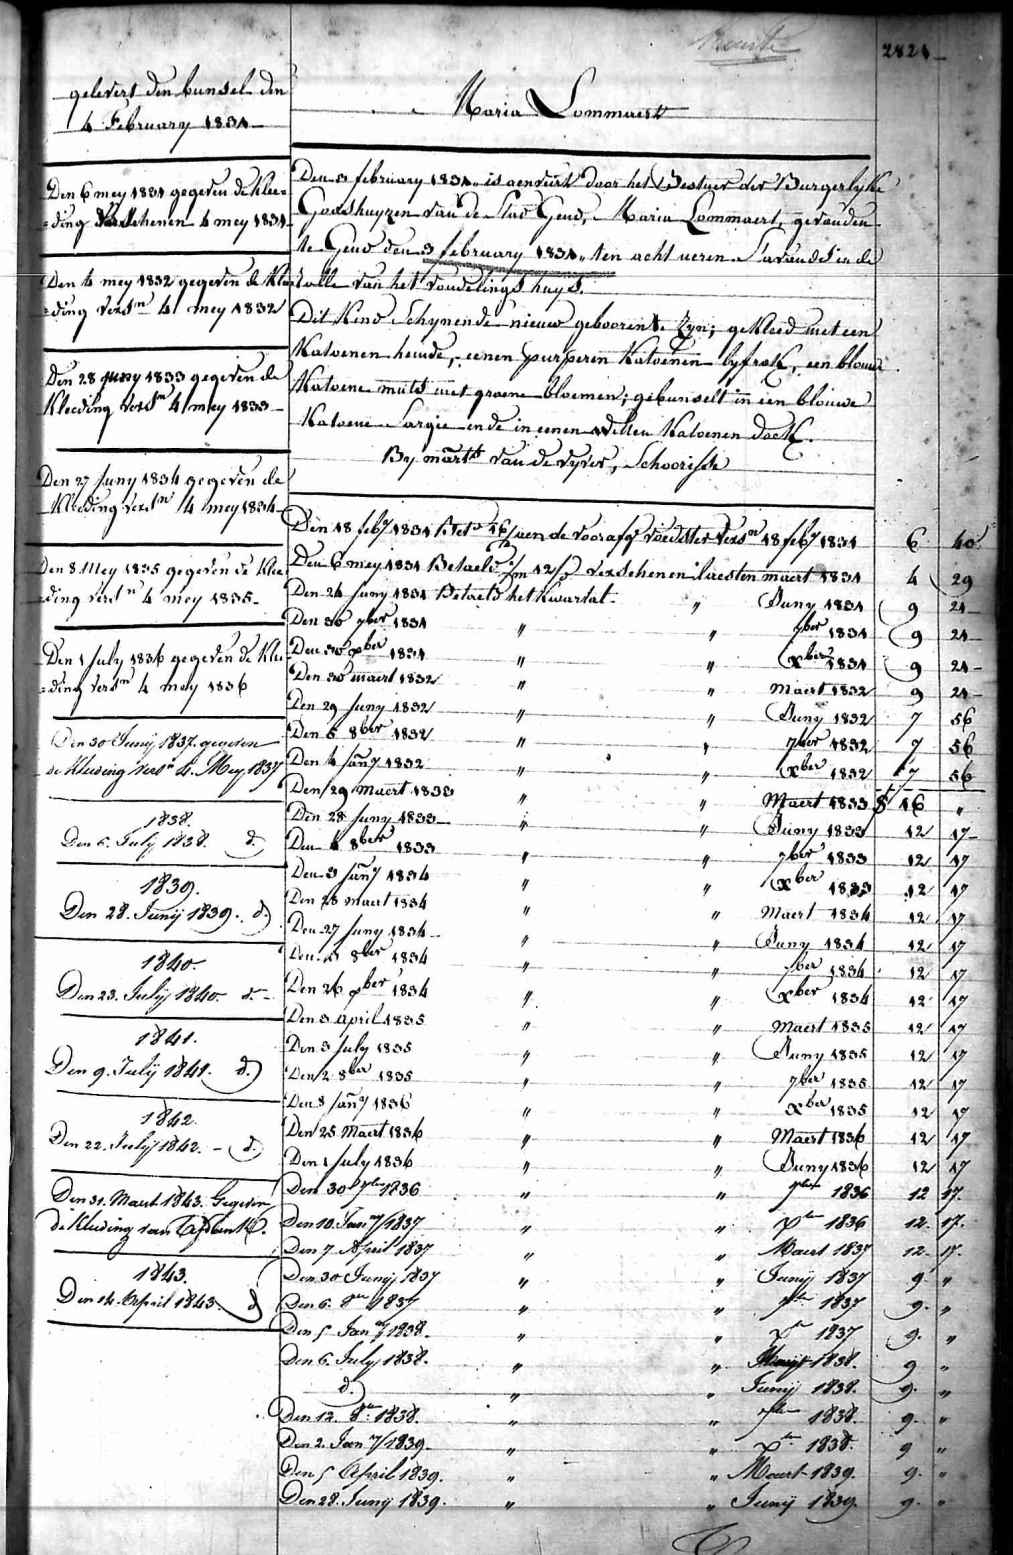 2821
Maria Lommaert
gelevert den bunsel den
4 February 1831
Den 6 mey 1831 gegeven de klee=
=ding verschenen 4 mey 1831
Den 4 mey 1832 gegeven de klee
=ding versn 4 mey 1832
Den 28 juny 1833 gegeven de
kleeding versn 4 mey 1833
Den 27 juny 1834 gegeven de
kleeding versn 4 mey 1834
Den 8 Mey 1835 gegeven de klee
=ding versn 4 mey 1835
Den 1 july 1836 gegeven de klee
=ding versn 4 mey 1836
Den 30 Junij 1837 gegeven
de kleeding versn 4. Mey 1837
1838.
Den 6. July 1838. d.
1839.
Den 28. Junij 1839. d.
1840.
Den 23. July 1840. d.
1841.
Den 9. July 1841. d.
1842.
Den 22. July 1842. - d.
Den 31. Maert 1843. Gegeven
de kleeding van
1843.
Den 14. April 1843. d
Den 3 february 1831 is aenveirt door het Bestuer der Burgerlyke
Godshuyzen van de Stad Gend, Maria Lommaert, gevonden
te Gend den 3 february 1831 ten acht ueren s'avonds in de
rolle van het vondelings huys.
Dit Kind Schynende nieuw gebooren te zyn; gekleed met een
Katoenen hemde, eenen purperen Katoenen byfrok, een blouw
Katoene muts met groene bloemen; gebunselt in een blouwe
Katoene Sargie ende in eenen witten Katoenen doek.
By van de vyver, Schoorisse
Den 18 feby 1831 aen de voorafge voedster versn 18 feby 1831 6 40
Den 6 mey 1831 Betaeld verschenen laesten maert 1831 4 29
Den 24 juny 1831 Betaeld het Kwartal " Juny 1831 9 21
Den 30 7ber 1831 " " 7ber 1831 9 21
Den 30 xber 1831 " " xber 1831 9 21
Den 30 maert 1832 " " Maert 1832 9 21
Den 29 juny 1832 " " Juny 1832 7 56
Den 5 8ber 1832 " " 7ber 1832 7 56
Den 4 jany 1832 " " xber 1832 7 56
Den 29 Maert 1833 " " Maert 1833 16 "
Den 28 juny 1833 " " Juny 1833 12 17
Den 4 8ber 1833 " " 7ber 1833 12 17
Den 3 jany 1834 " " xber 1833 12 17
Den 28 maert 1834 " " Maert 1834 12 17
Den 27 juny 1834 " " Juny 1834 12 17
Den 3 8ber 1834 " " 7ber 1834 12 17
Den 26 xber 1834 " " xber 1834 12 17
Den 3 april 1835 " " Maert 1835 12 17
Den 3 july 1835 " " Juny 1835 12 17
Den 2 8ber 1835 " " 7ber 1835 12 17
Den 8 jany 1836 " " xber 1835 12 17
Den 25 Maert 1836 " " Maert 1836 12 17
Den 1 july 1836 " " Juny 1836 12 17
Den 30 7ber 1836 " " 7ber 1836 12 17.
Den 10. Jany 1837 " " xber 1836 12. 17.
Den 7. April 1837 " " Maert 1837 12. 17.
Den 30 Junij 1837 " " Junij 1837 9. "
Den 6. 8ber 1837 " " 7ber 1837 9. "
Den 5 Jany 1838. " " xr 1837 9. "
Den 6. July 1838. " " 1838. 9 "
d. " " Junij 1838. 9. "
Den 12. 8br 1838. " " 7ber 1838. 9. "
Den 2. Jany 1839. " " xber 1838. 9 "
Den 5 April 1839. " " Maert 1839. 9. "
Den 28. Junij 1839. " " Junij 1839 9. "